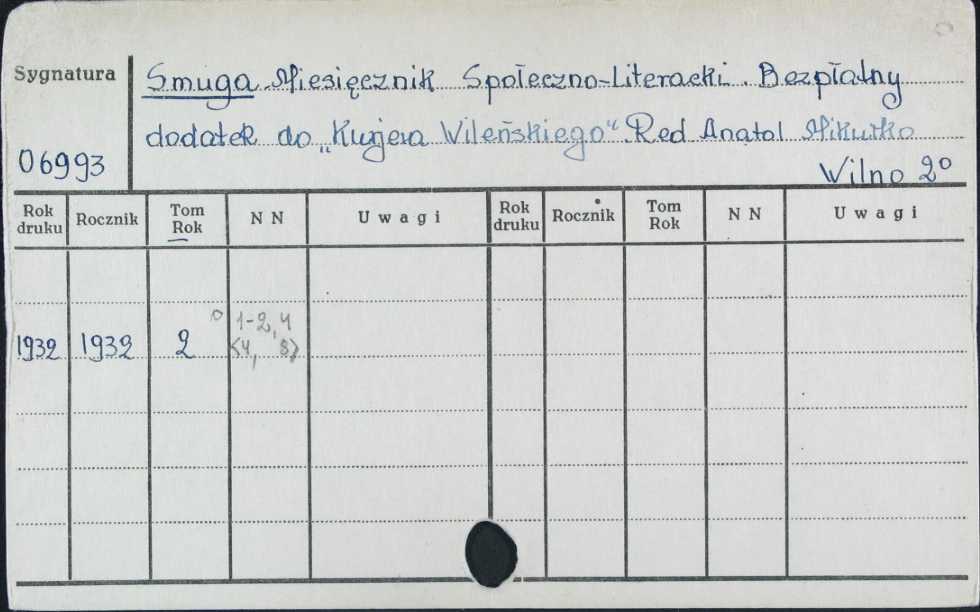 Sygnatura
06993
Smuga. Miesięcznik Społeczno-Literacki. Bezpłatny
dodatek do „Kurjera Wileńskiego". Red Anatol Mikułko
Wilno 2°
Rok druku Rocznik Tom Rok N N Uwagi Rok druku Rocznik Tom Rok N N Uwagi
1-2, 4
1932 1932 2 <4, 8>